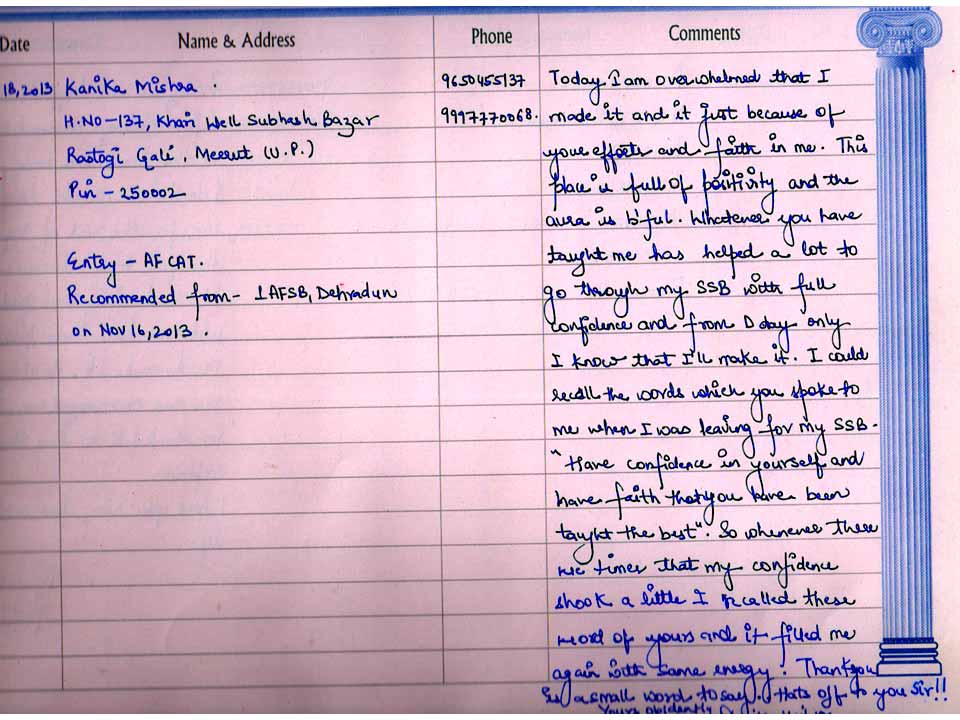 Date Name & Address Phone Comments
18,2013 Kanika Mishra. 9650455137 Today I am overwhelmed that I
H.NO-137, Khari Well Subhash Bazar 9997770068. made it and it just because of
Rastogi Gali, Meerut (U.P.) your efforts and faith in me. This
Pin - 250002 place is full of positivity and the
aura is b'ful. Whatever you have
Entry - AFCAT. taught me has helped a lot to
Recommended from- 1AFSB, Dehradun go through my SSB with full
on Nov 16, 2013. confidence and from D day only
I know that I'll make it. I could
recall the words which you spoke to
me when I was leaving for my SSB.
"Have confidence in yourself and
have faith that you have been
taught the best". So whenever there
were times that my confidence
shook a little I recalled these
word of yours and it filled me
again with same energy. Thankyou
is a small word to say. Hats off to you Sir!!
Yours obidently